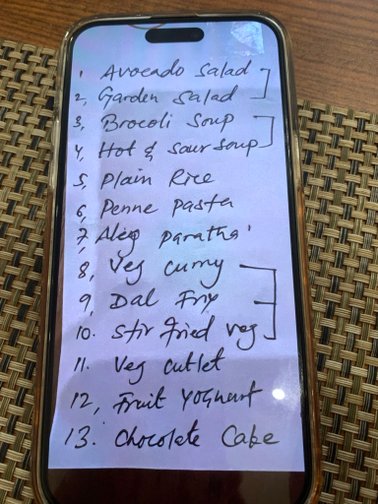 1, Avocado Salad
2, Garden Salad
3, Brocoli Soup
4, Hot & Sour Soup
5, Plain Rice
6, Penne Pasta
7, Aleg paratha
8, Veg curry
9, Dal Fry
10. Stir fried veg
11. Veg cutlet
12, Fruit Yoghurt
13. Chocolate Cake